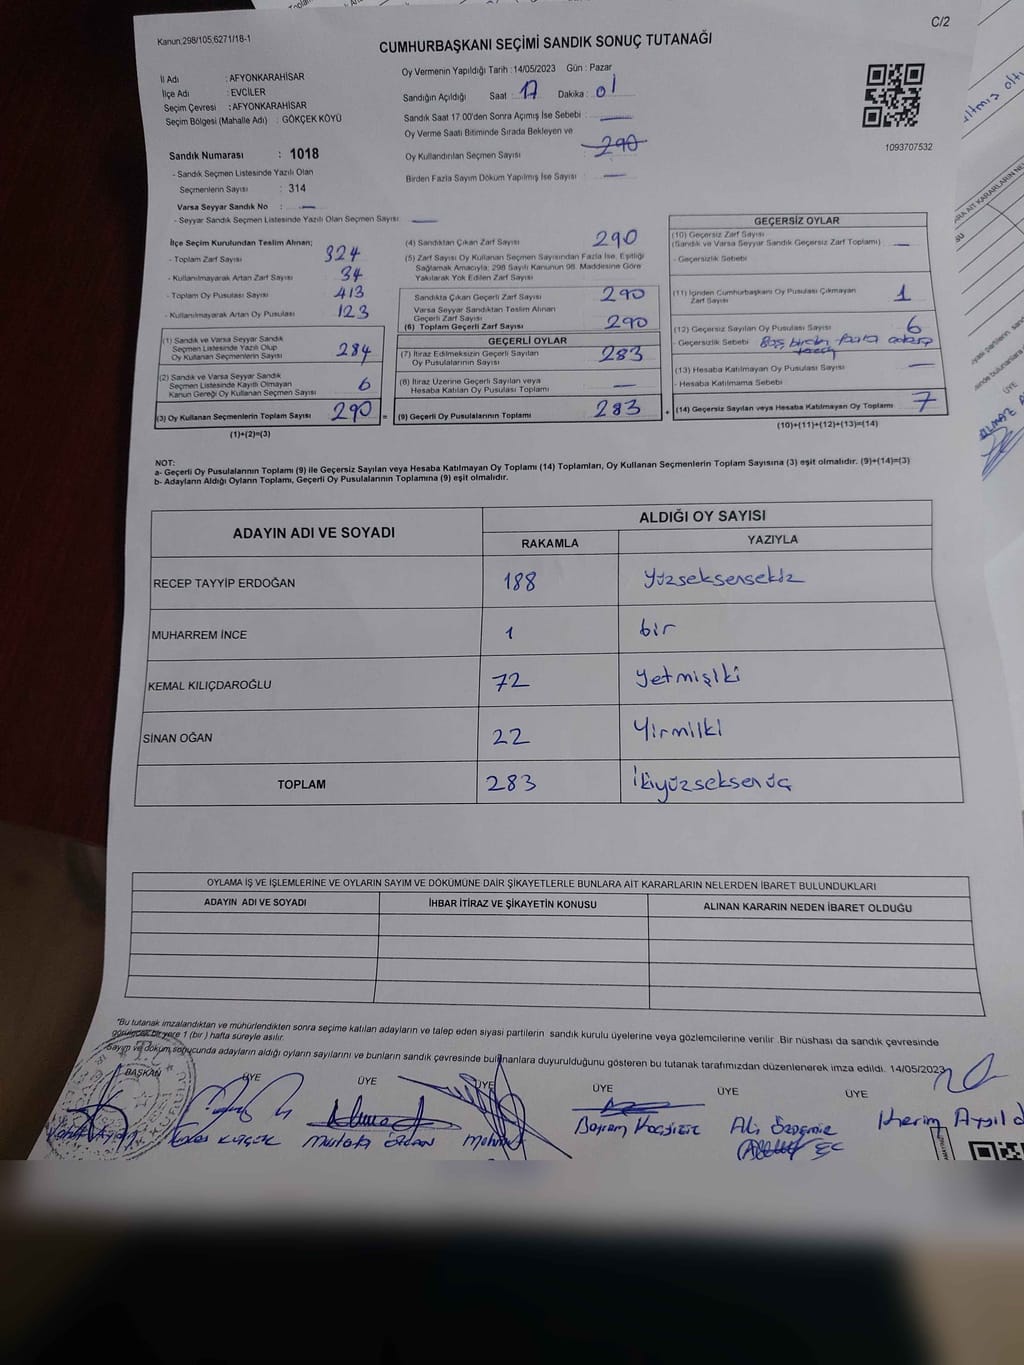 C/2
Kanun;298/105;6271/18-1
CUMHURBAŞKANI SEÇİMİ SANDIK SONUÇ TUTANAĞI
İl Adı : AFYONKARAHİSAR
İlçe Adı : EVCİLER
Seçim Çevresi : AFYONKARAHİSAR
Seçim Bölgesi (Mahalle Adı) : GÖKÇEK KÖYÜ
Oy Vermenin Yapıldığı Tarih :14/05/2023 Gün : Pazar
Sandığın Açıldığı Saat : 17 Dakika : 01
Sandık Saat 17.00'den Sonra Açımış İse Sebebi : —
Oy Verme Saati Bitiminde Sırada Bekleyen ve
Oy Kullandırılan Seçmen Sayısı : 290
Birden Fazla Sayım Döküm Yapılmış İse Sayısı : —
1093707532
Sandık Numarası : 1018
- Sandık Seçmen Listesinde Yazılı Olan
Seçmenlerin Sayısı : 314
Varsa Seyyar Sandık No : —
- Seyyar Sandık Seçmen Listesinde Yazılı Olan Seçmen Sayısı: —
İlçe Seçim Kurulundan Teslim Alınan;
- Toplam Zarf Sayısı 324
- Kullanılmayarak Artan Zarf Sayısı 34
- Toplam Oy Pusulası Sayısı 413
- Kullanılmayarak Artan Oy Pusulası 123
(1) Sandık ve Varsa Seyyar Sandık
Seçmen Listesinde Yazılı Olup
Oy Kullanan Seçmenlerin Sayısı 284
(2) Sandık ve Varsa Seyyar Sandık
Seçmen Listesinde Kayıtlı Olmayan
Kanun Gereği Oy Kullanan Seçmen Sayısı 6
(3) Oy Kullanan Seçmenlerin Toplam Sayısı 290 =
(1)+(2)=(3)
(4) Sandıktan Çıkan Zarf Sayısı 290
(5) Zarf Sayısı Oy Kullanan Seçmen Sayısından Fazla İse, Eşitliği
Sağlamak Amacıyla; 298 Sayılı Kanunun 98. Maddesine Göre
Yakılarak Yok Edilen Zarf Sayısı
Sandıkta Çıkan Geçerli Zarf Sayısı 290
Varsa Seyyar Sandıktan Teslim Alınan
Geçerli Zarf Sayısı
(6) Toplam Geçerli Zarf Sayısı 290
GEÇERLİ OYLAR
(7) İtiraz Edilmeksizin Geçerli Sayılan
Oy Pusulalarının Sayısı 283
(8) İtiraz Üzerine Geçerli Sayılan veya
Hesaba Katılan Oy Pusulası Toplamı —
(9) Geçerli Oy Pusulalarının Toplamı 283 +
GEÇERSİZ OYLAR
(10) Geçersiz Zarf Sayısı
(Sandık ve Varsa Seyyar Sandık Geçersiz Zarf Toplamı) —
- Geçersizlik Sebebi
(11) İçinden Cumhurbaşkanı Oy Pusulası Çıkmayan
Zarf Sayısı 1
(12) Geçersiz Sayılan Oy Pusulası Sayısı 6
- Geçersizlik Sebebi birden fazla
(13) Hesaba Katılmayan Oy Pusulası Sayısı —
- Hesaba Katılmama Sebebi
(14) Geçersiz Sayılan veya Hesaba Katılmayan Oy Toplamı 7
(10)+(11)+(12)+(13)=(14)
NOT:
a- Geçerli Oy Pusulalarının Toplamı (9) ile Geçersiz Sayılan veya Hesaba Katılmayan Oy Toplamı (14) Toplamları, Oy Kullanan Seçmenlerin Toplam Sayısına (3) eşit olmalıdır. (9)+(14)=(3)
b- Adayların Aldığı Oyların Toplamı, Geçerli Oy Pusulalarının Toplamına (9) eşit olmalıdır.
ADAYIN ADI VE SOYADI
ALDIĞI OY SAYISI
RAKAMLA YAZIYLA
RECEP TAYYİP ERDOĞAN 188 Yüzseksensekiz
MUHARREM İNCE 1 bir
KEMAL KILIÇDAROĞLU 72 Yetmişiki
SİNAN OĞAN 22 Yirmiiki
TOPLAM 283 İkiyüzseksenüç
OYLAMA İŞ VE İŞLEMLERİNE VE OYLARIN SAYIM VE DÖKÜMÜNE DAİR ŞİKAYETLERLE BUNLARA AİT KARARLARIN NELERDEN İBARET BULUNDUKLARI
ADAYIN ADI VE SOYADI İHBAR İTİRAZ VE ŞİKAYETİN KONUSU ALINAN KARARIN NEDEN İBARET OLDUĞU
"Bu tutanak imzalandıktan ve mühürlendikten sonra seçime katılan adayların ve talep eden siyasi partilerin sandık kurulu üyelerine veya gözlemcilerine verilir .Bir nüshası da sandık çevresinde
görülecek bir yere 1 (bir ) hafta süreyle asılır.
Sayım ve döküm sonucunda adayların aldığı oyların sayılarını ve bunların sandık çevresinde bulunanlara duyurulduğunu gösteren bu tutanak tarafımızdan düzenlenerek imza edildi. 14/05/2023
BAŞKAN ÜYE ÜYE ÜYE ÜYE ÜYE ÜYE
Mustafa Bayram Ali Özdemir Kerim